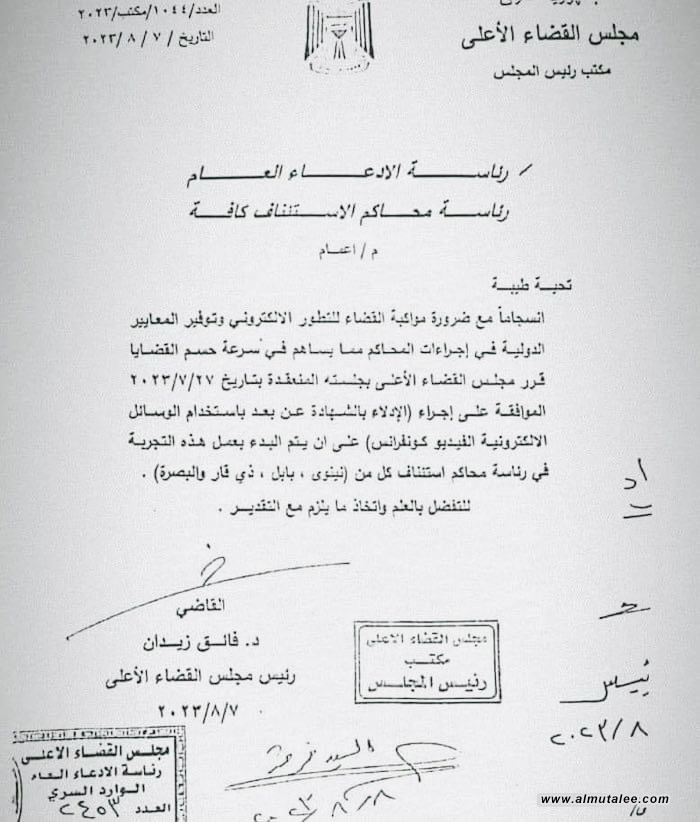 مجلس القضاء الأعلى
مكتب رئيس المجلس
العدد/١٠٤٤/مكتب/٢٠٢٣
التاريخ / ٧ / ٨ /٢٠٢٣
/ رئاســة الادعــاء العــام
رئاسـة محـاكم الاسـتئناف كافـة
م / اعمام
تحية طيبة
انسجاماً مع ضرورة مواكبة القضاء للتطور الالكتروني وتوفير المعايير
الدولية في إجراءات المحاكم مما يساهم في سرعة حسم القضايا
قرر مجلس القضاء الأعلى بجلسته المنعقدة بتاريخ ٢٠٢٣/٧/٢٧
الموافقة على إجراء (الإدلاء بالشهادة عن بعد باستخدام الوسائل
الالكترونية الفيديو كونفرانس) على ان يتم البدء بعمل هذه التجربة
في رئاسة محاكم استئناف كل من (نينوى ، بابل ، ذي قار والبصرة) .
للتفضل بالعلم واتخاذ ما يلزم مع التقدير .
القاضي
د. فائق زيدان
رئيس مجلس القضاء الأعلى
٢٠٢٣/٨/٧
مجلس القضاء الاعلى
مكتب
رئيس المجلس
مجلس القضاء الأعلى
رئاسة الادعاء العام
الوارد السري
العدد ٢٤٥٣
السيد
٢٠٢٣/٨/٨
٢٠٢٣/٨
www.almutalee.com